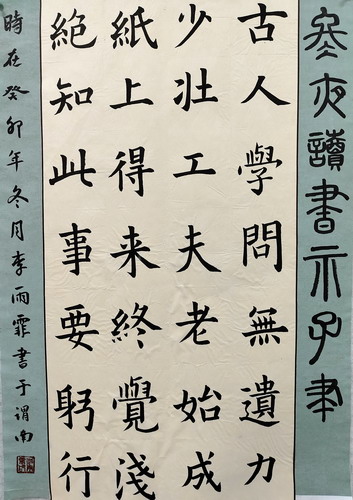 冬夜讀書示子聿
古人學問無遺力
少壯工夫老始成
紙上得来終覺淺
絕知此事要躬行
時在癸卯年冬月李雨霏書于渭南